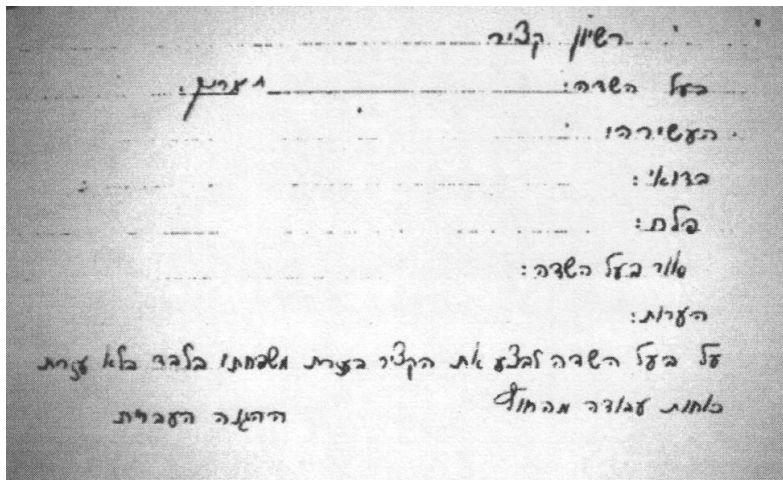 רשיון קציר
בעל השדה: תאריך:
העשירה:
בדואי:
פלח:
בעל השדה:
הערות:
על בעל השדה לבצע את הקציר בעזרת משפחתו בלבד בלא עזרת
כוחות עבודה מהחוץ
ההגנה העברית